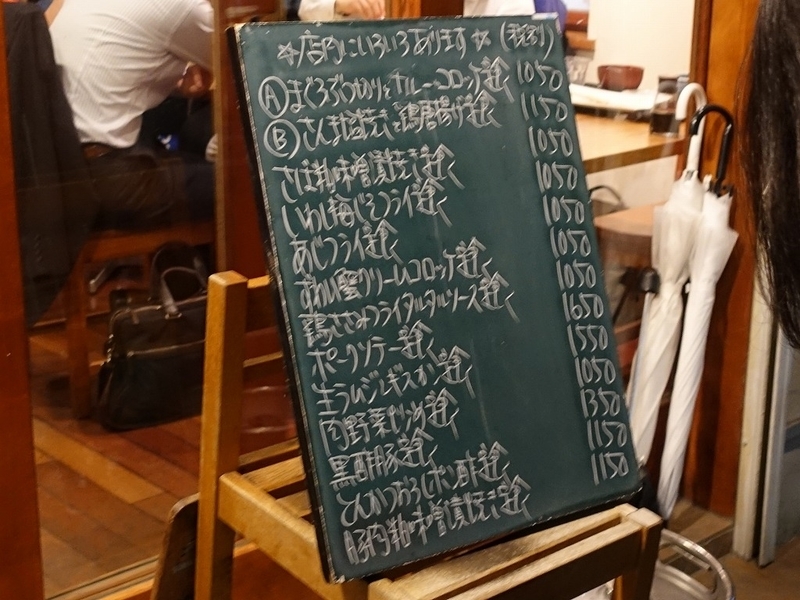 ☆店内にいろいろあります☆ (税別)
Ⓐまぐろぶつ切りとカレーコロッケ定食 1050
Ⓑさんま塩焼きと鶏唐揚げ定食 1150
さば粕味噌漬焼き定食 1050
いわし梅じそフライ定食 1050
あじフライ定食 1050
ずわい蟹クリームコロッケ定食 1050
鶏ささみフライタルタルソース定食 1050
ポークソテー定食 1650
生ラムジンギスカン定食 1550
肉野菜炒め定食 1050
黒酢豚定食 1350
とんかつおろしポン酢定食 1150
豚肉粕味噌漬焼き定食 1150